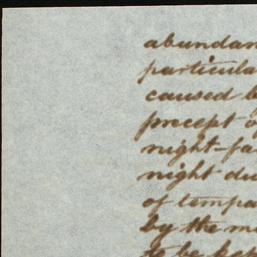 abundan
particula
caused b
precept o
night-fa
night du
of tempe
by the m
to be kep